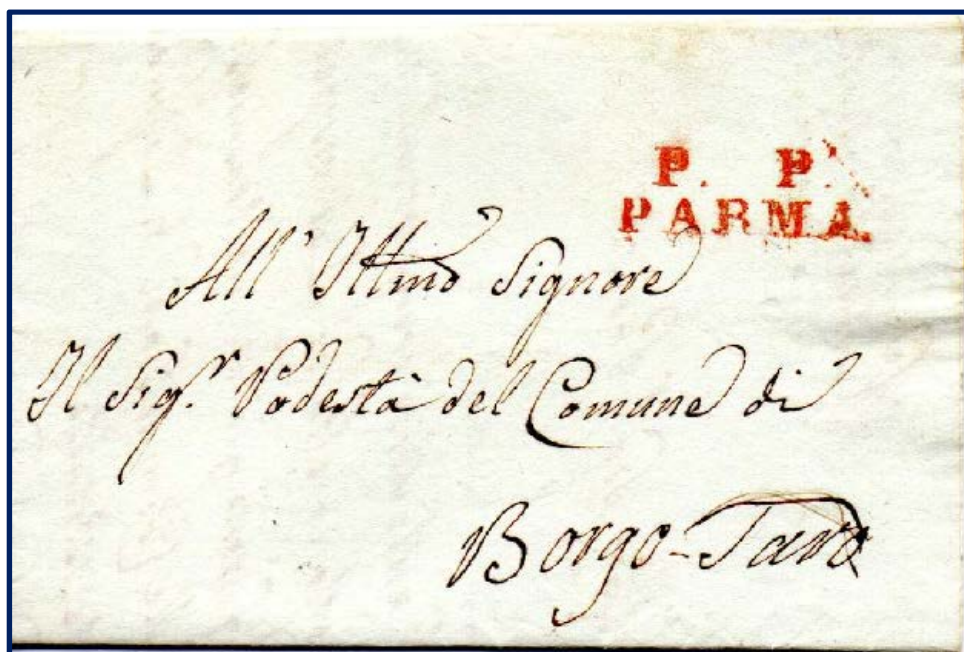 P. P.
PARMA.
All' Illmo Signore
Il Sigr. Podestà del Comune di
Borgo-Taro